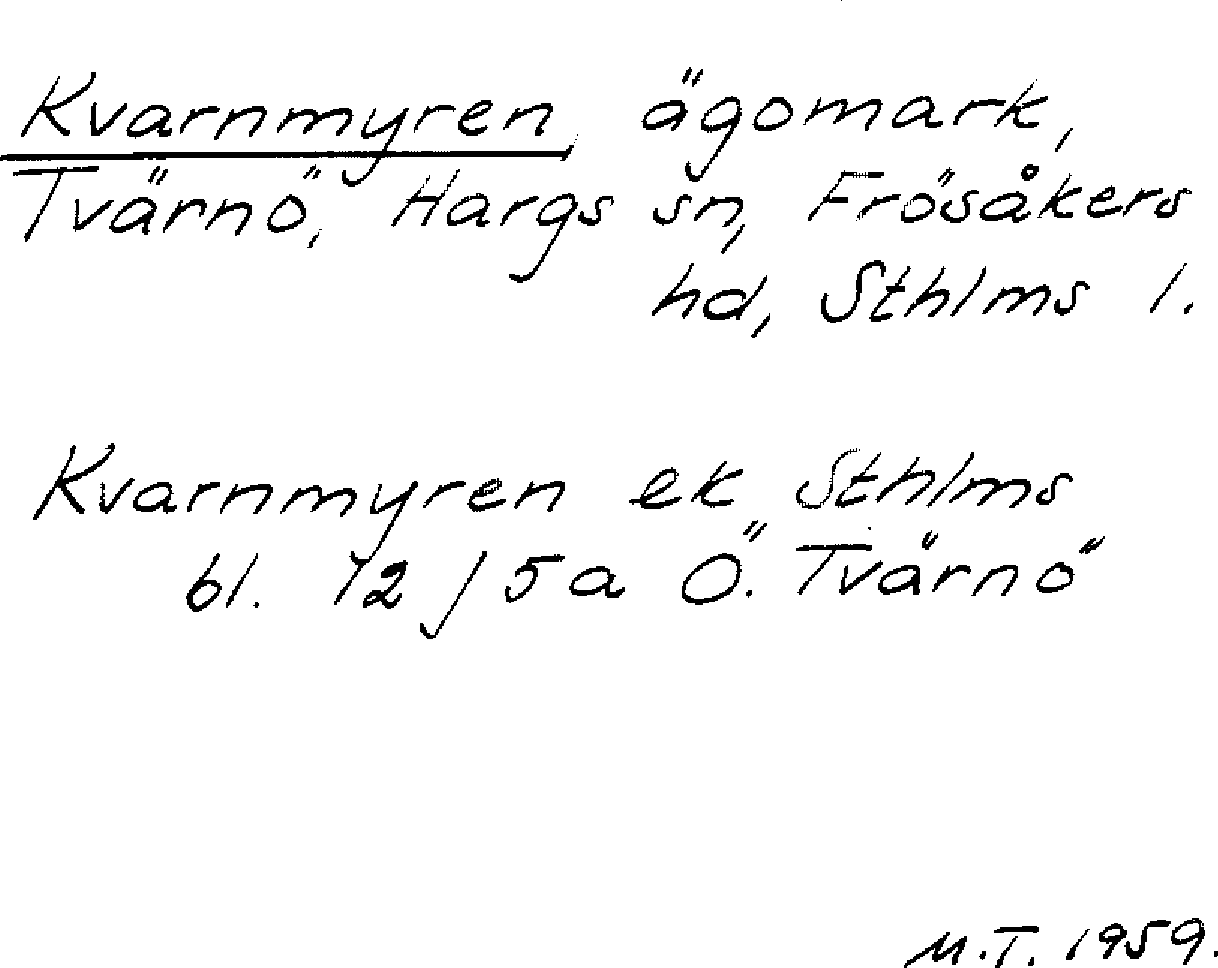 Kvarnmyren, ägomark,
Tvärnö, Hargs sn, Frösåkers
hd, Sthlms l.
Kvarnmyren ek Sthlms
bl. 12 J 5a Ö. Tvärnö
M.T. 1959.